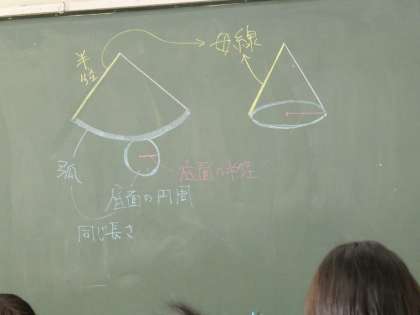 半径
母線
弧
底面の半径
底面の円周
同じ長さ